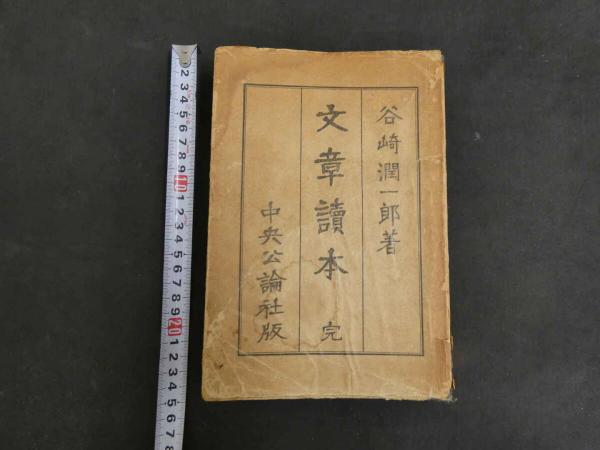 谷崎潤一郎著
文章讀本 完
中央公論社版
1 2 3 4 5 6 7 8 9 10 1 2 3 4 5 6 7 8 9 20 1 2 3 4 5 6 7